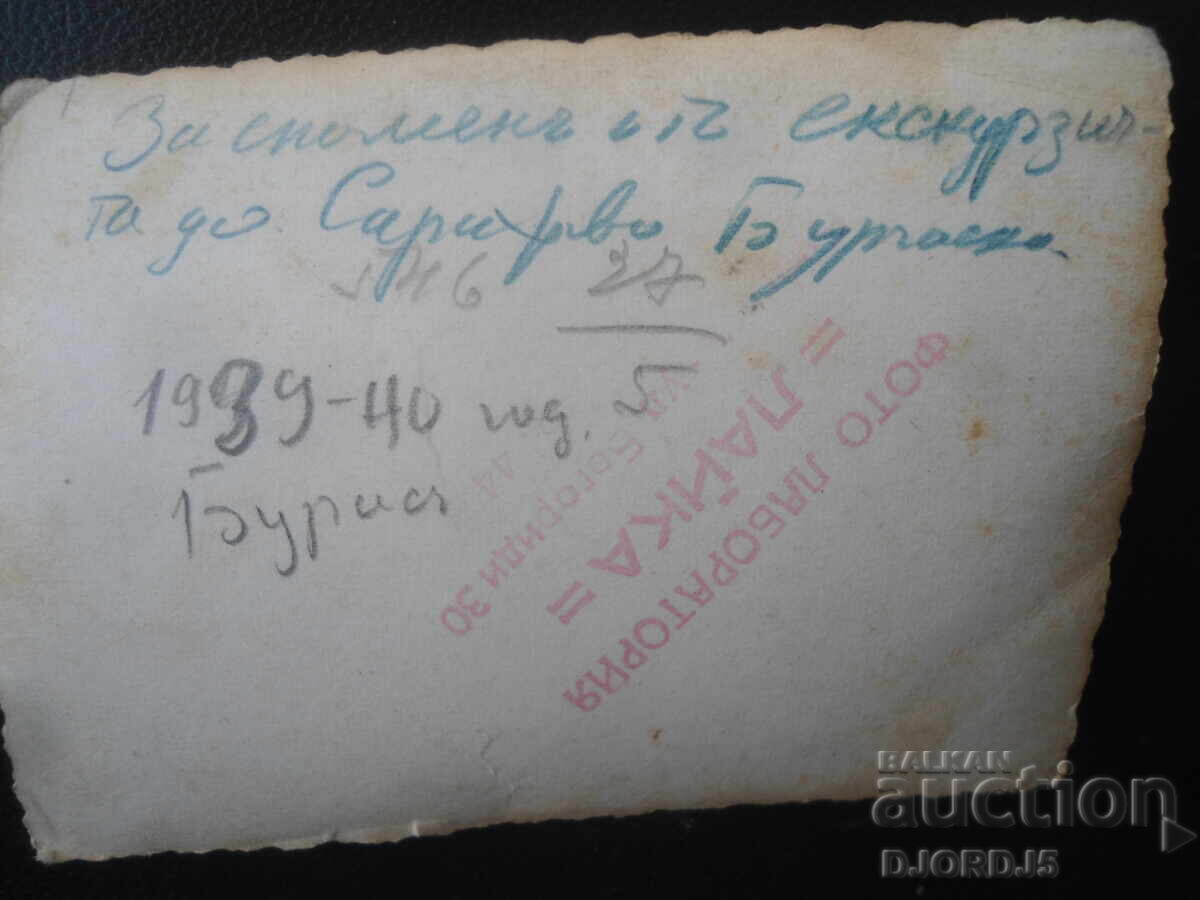 За споменъ отъ екскурзия-
та до Сарафово Бургаско.
546 27
1939-40 год.
Бургас
ФОТО ЛАБОРАТОРИЯ
= ЛАЙКА =
ул. Богориди 30
BALKAN
auction
DJORDJ5